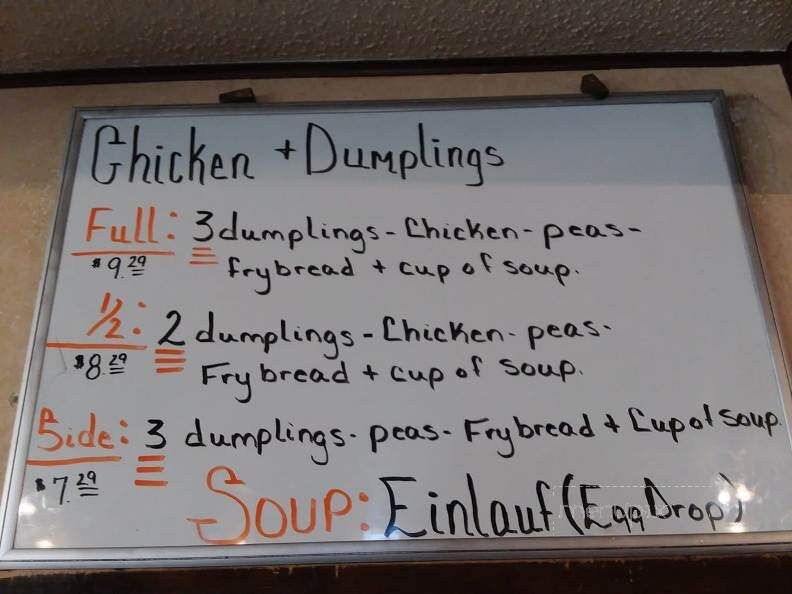 Chicken + Dumplings
Full: 3 dumplings - Chicken - peas -
$9.29 frybread + cup of soup.
1/2: 2 dumplings - Chicken - peas -
$8.29 Frybread + cup of soup.
Side: 3 dumplings - peas - Frybread + Cup of soup.
$7.29
Soup: Einlauf (Egg Drop)